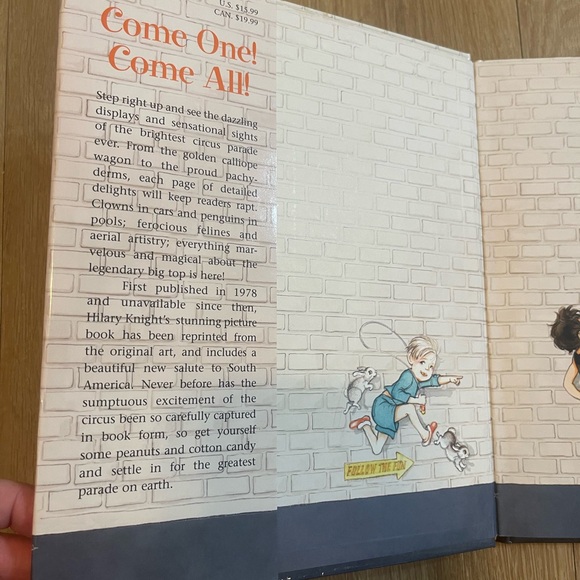 U.S. $15.99
CAN. $19.99
Come One!
Come All!
Step right up and see the dazzling
displays and sensational sights
of the brightest circus parade
ever. From the golden calliope
wagon to the proud pachy-
derms, each page of detailed
delights will keep readers rapt.
Clowns in cars and penguins in
pools; ferocious felines and
aerial artistry; everything mar-
velous and magical about the
legendary big top is here!
First published in 1978
and unavailable since then,
Hilary Knight's stunning picture
book has been reprinted from
the original art, and includes a
beautiful new salute to South
America. Never before has the
sumptuous excitement of the
circus been so carefully captured
in book form, so get yourself
some peanuts and cotton candy
and settle in for the greatest
parade on earth.
FOLLOW THE FUN